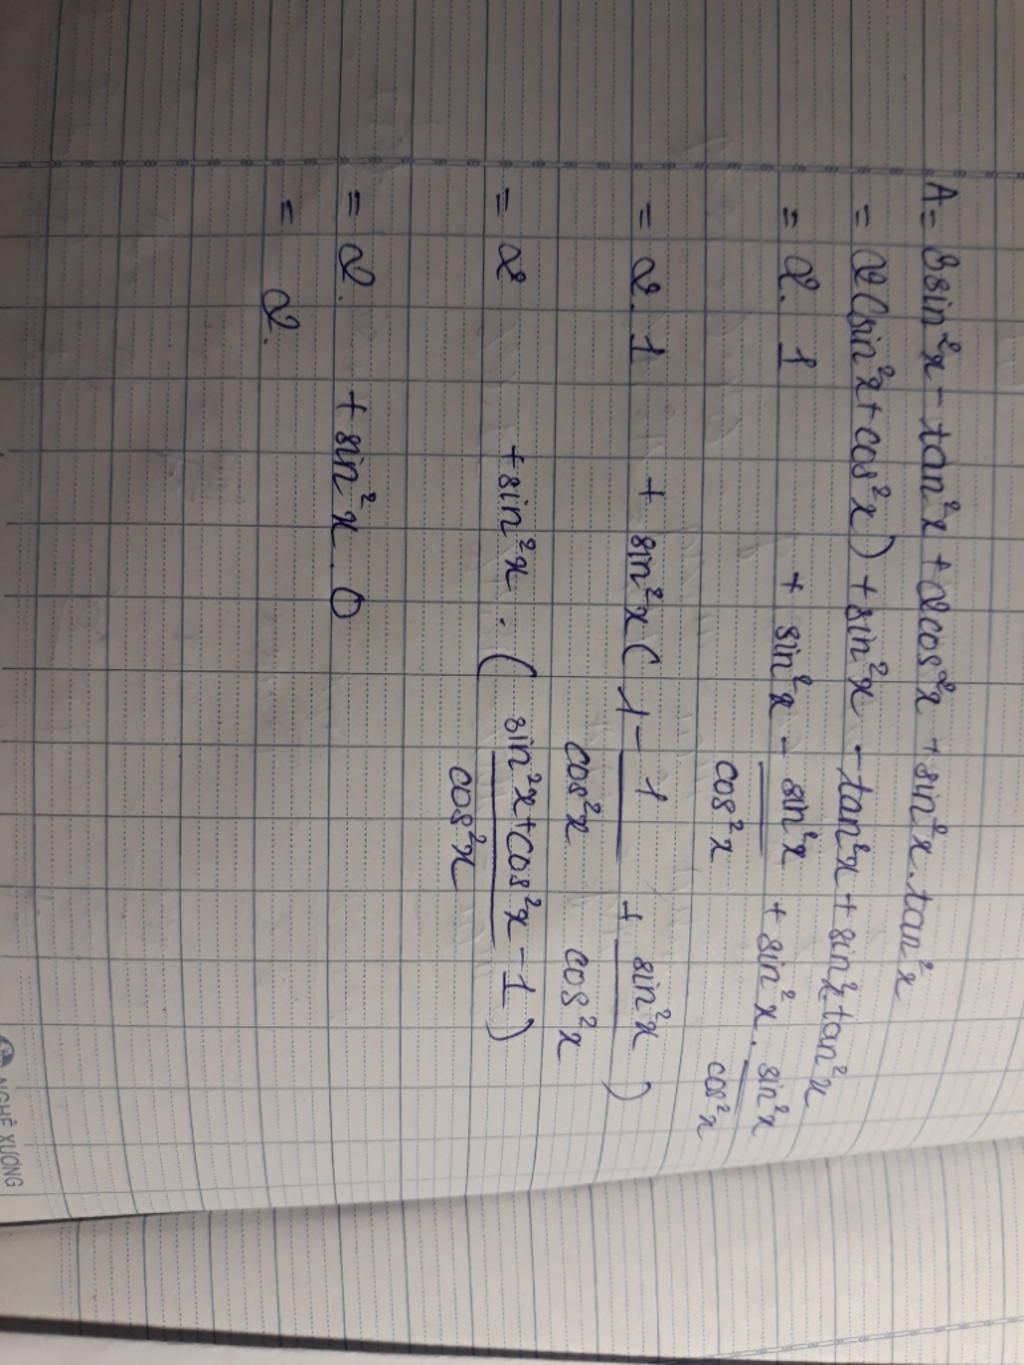 A = 3sin²x - tan²x + 2cos²x + sin²x.tan²x
= 2(sin²x + cos²x) + sin²x - tan²x + sin²x tan²x
= 2.1 + sin²x - sin²x/cos²x + sin²x . sin²x/cos²x
= 2.1 + sin²x (1 - 1/cos²x + sin²x/cos²x)
= 2 + sin²x . (sin²x + cos²x - 1 / cos²x)
= 2. + sin²x . 0
= 2.
NGHÊ XƯƠNG